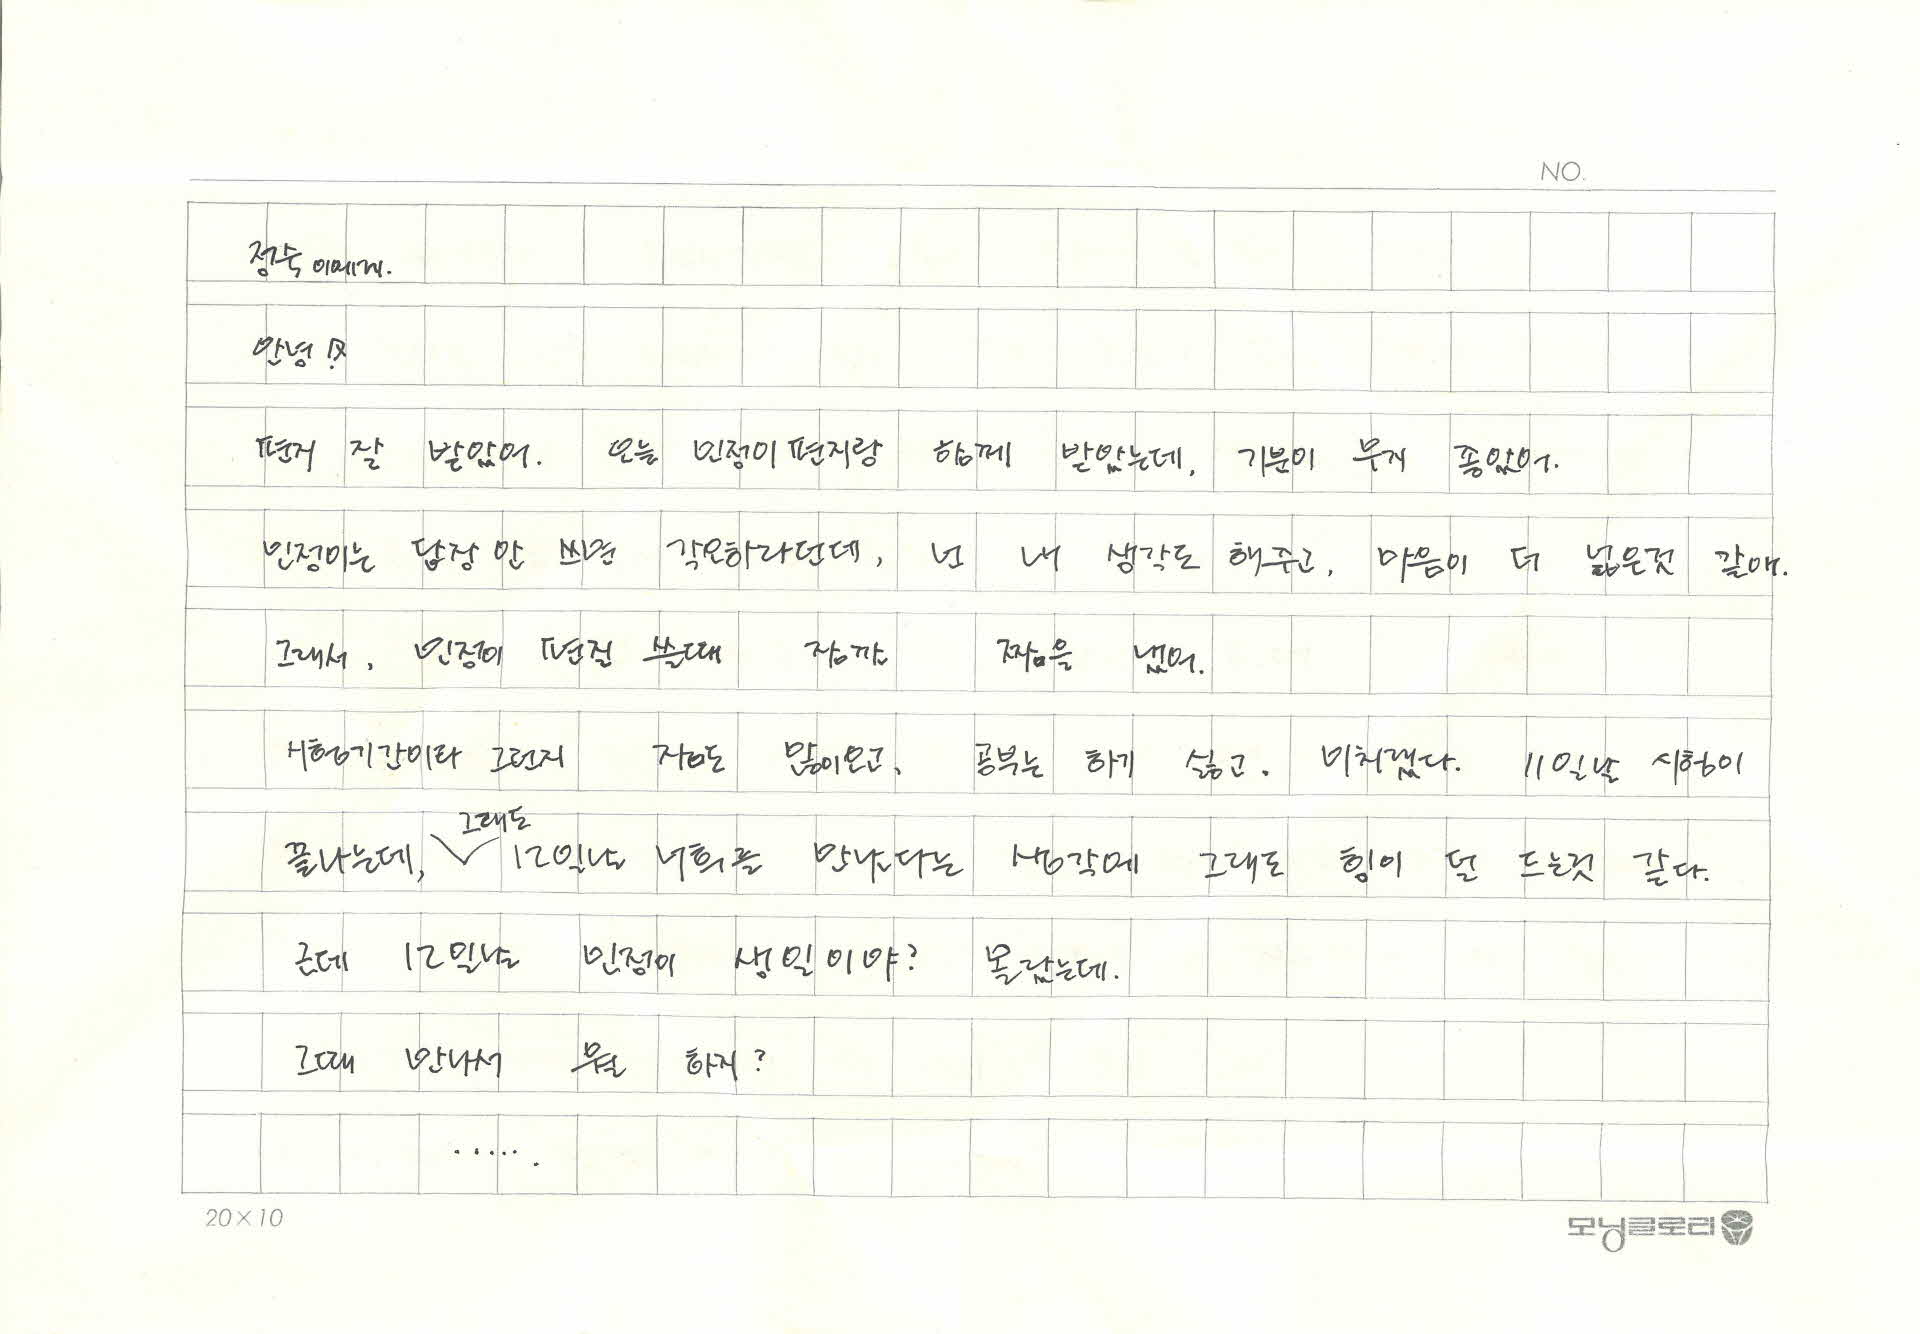 NO.
정숙이에게.
안녕!
편지 잘 받았어. 오늘 민정이 편지랑 함께 받았는데, 기분이 무지 좋았어.
민정이는 답장 안 쓰면 각오하라던데, 넌 내 생각도 해주고, 마음이 더 넓은것 같애.
그래서, 민정이 편질 쓸때 잠깐 짬을 냈어.
시험기간이라 그런지 잠도 많이오고, 공부는 하기 싫고. 미치겠다. 11일날 시험이
그래도
끝나는데, 12일날 너희를 만난다는 생각에 그래도 힘이 덜 드는것 같다.
근데 12일날 민정이 생일이야? 몰랐는데.
그때 만나서 뭘 하지?
......
20×10
모닝글로리